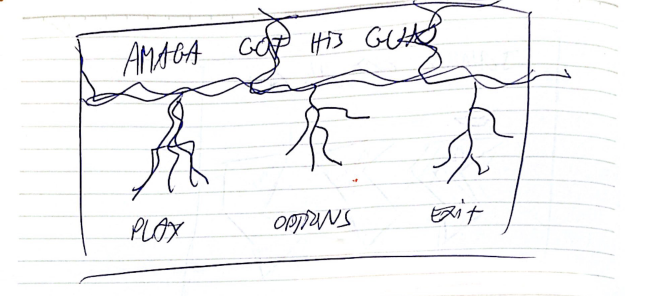 AMAGA GOT HIS GUN
PLAY OPTIONS EXit